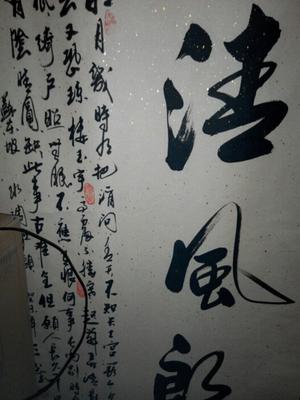 清風
月幾時有把酒問青天不知天上宮闕今夕
去又恐瓊樓玉宇高處不勝寒起舞弄清影
低綺戶照無眠不應有恨何事長向別時
有陰晴圓缺此事古難全但願人長久千
蘇東坡 水調歌頭